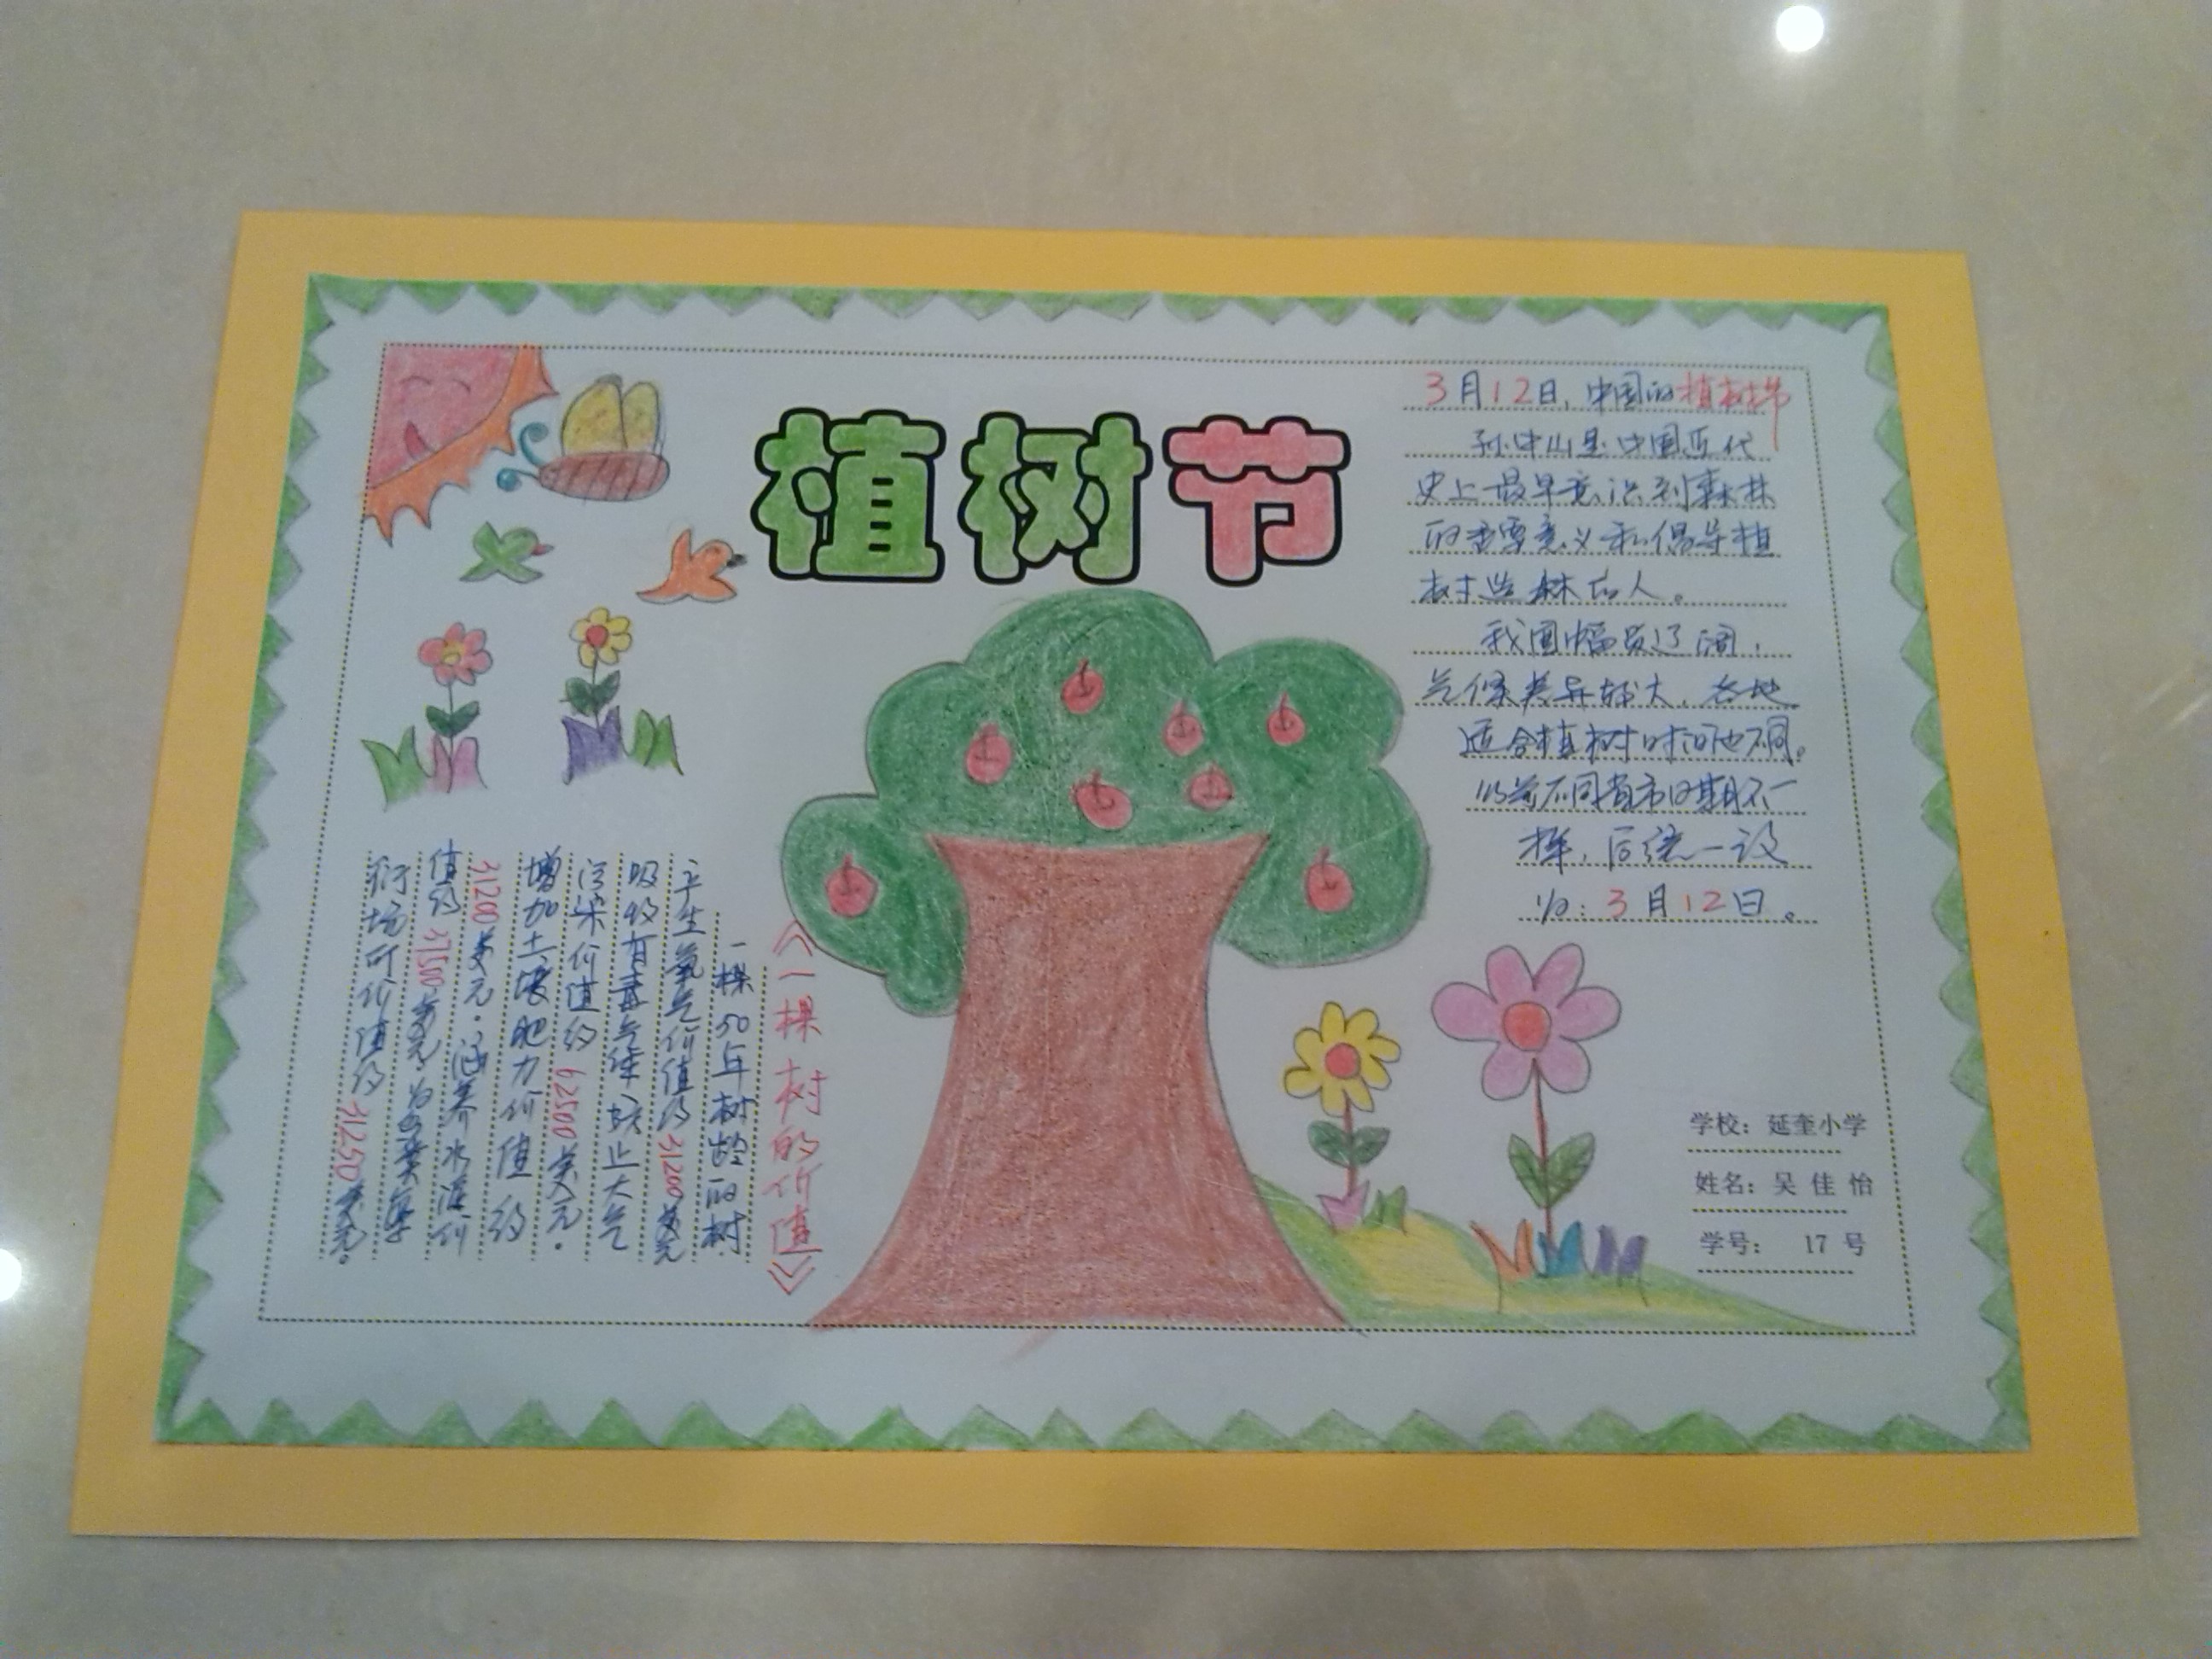 植树节
3月12日,中国的植树节
孙中山是中国近代
史上最早意识到森林
的重要意义和倡导植
树造林的人。
我国幅员辽阔,
气候差异较大,各地
适合植树时间也不同。
以前不同省市日期不一
样,后统一设
为:3月12日。
《一棵树的价值》
一棵50年树龄的树
产生氧气价值约31200美元
吸收有毒气体防止大气
污染价值约62500美元.
增加土壤肥力价值约
31200美元.涵养水源价
值约37500美元
衍场所价值约31250美元。
学校:延奎小学
姓名:吴佳怡
学号: 17 号